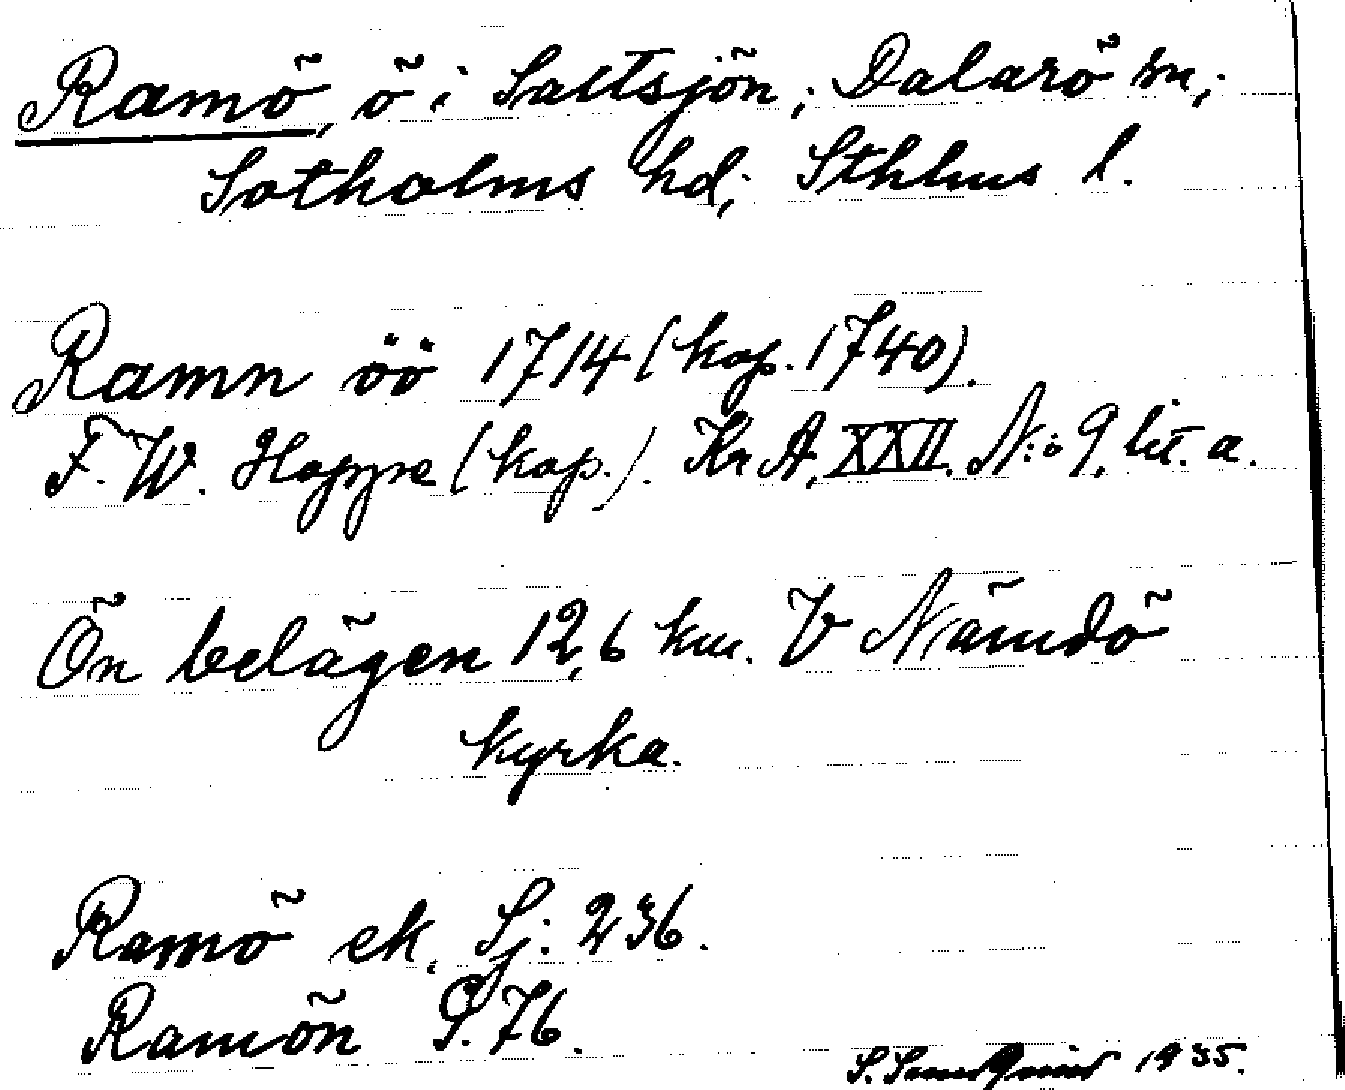 Ramö, ö i Saltsjön; Dalarö sn;
Sotholms hd; Sthlms l.
Ramn öö 1714 (kop. 1740).
F. W. Hoppe (kop.). Kr A, XXII. N:o 9. lit. a.
Ön belägen 12,6 km. V Nämdö
kyrka.
Ramö ek. Sj: 236.
Ramön P. 76.
S. 1935.